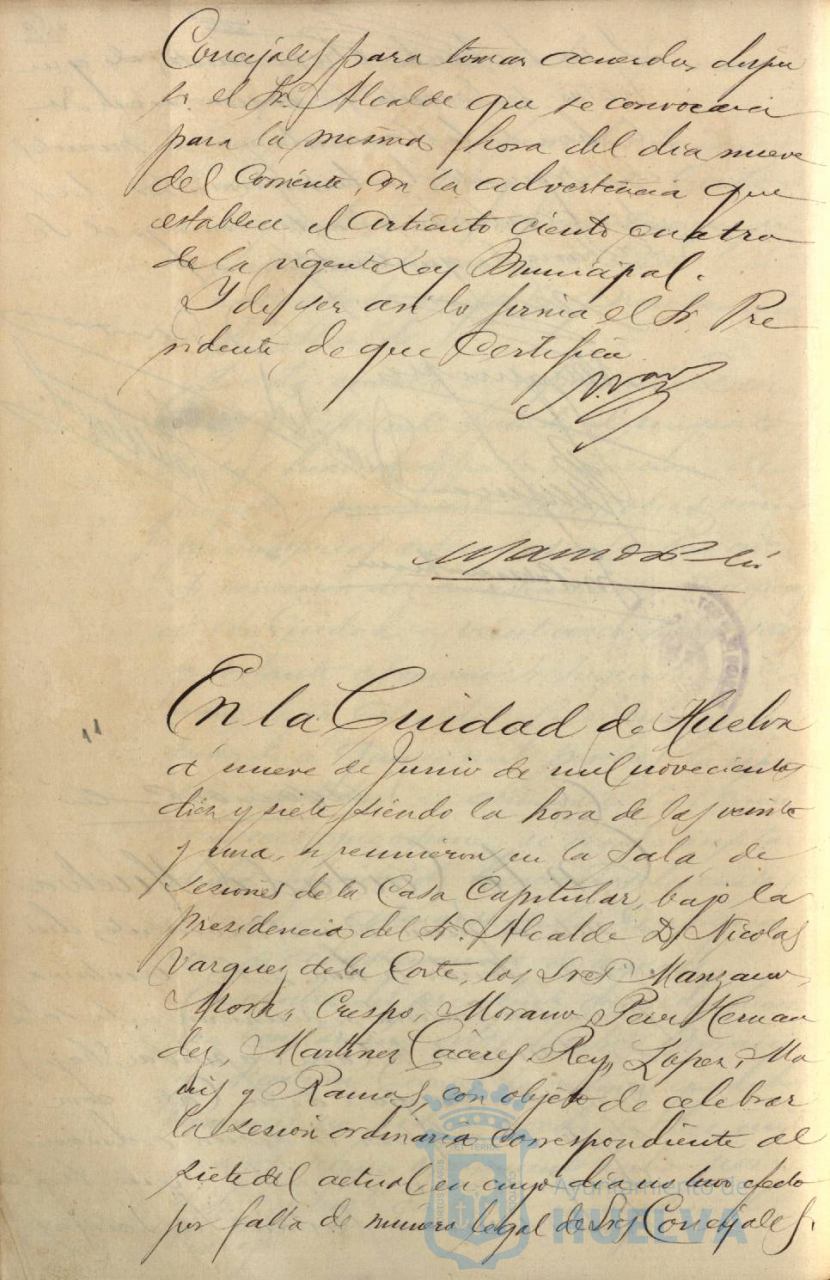 Concejales para tomar acuerdos, dispu
so el Sr. Alcalde que se convocara
para la misma hora del dia nueve
del corriente, con la advertencia que
establece el artículo ciento cuatro
de la vigente Ley Municipal.
Y de ser así lo firma el Sr. Pre
sidente, de que certifico
En la Ciudad de Huelva
á nueve de Junio de mil novecientos
diez y siete siendo la hora de las veinte
y una, se reunieron en la Sala de
sesiones de la Casa Capitular, bajo la
presidencia del Sr. Alcalde D. Nicolas
Vazquez de la Corte, los Sres Manzano,
Mora, Crespo, Morano, Perez Hernan
dez, Martinez Cáceres, Rey, Lopez,
y Ramos, con objeto de celebrar
la sesion ordinaria correspondiente al
siete del actual, en cuyo dia no tuvo efecto
por falta de número legal de Sres Concejales.
Ayuntamiento de
HUELVA